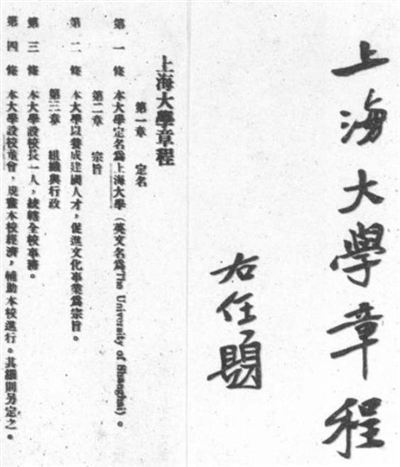 上海大學章程
右任題
上海大學章程
第一章 定名
第一條 本大學定名爲上海大學（英文名爲The University of Shanghai）。
第二章 宗旨
第二條 本大學以養成建國人才，促進文化事業爲宗旨。
第三章 組織與行政
第三條 本大學設校長一人，統轄全校事務。
第四條 本大學設校董會，規畫本校經濟，輔助本校進行。其細則另定之。